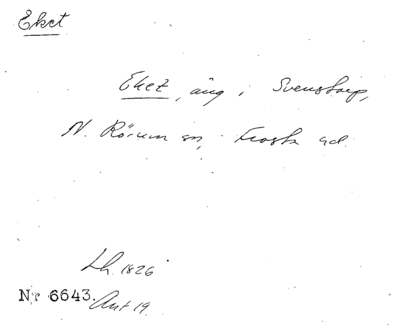 Eket
Eket, äng i Svenstorp,
N. Rörum sn, Frosta hd.
Lh. 1826
Nr 6643. Ant 19.